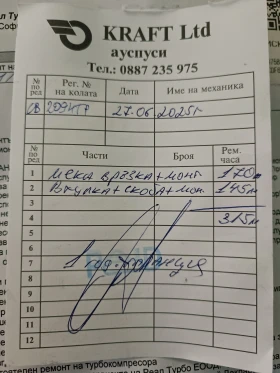 KRAFT Ltd
ауспуси
Тел.: 0887 235 975
№ по ред
Рег. № на колата
Дата
Име на механика
СВ 2094ТР
27.06.2025г
№ по ред
Части
Броя
Рем. часа
1 мека връзка + монт 170
2 Втулка + скоба + мон. 145
3
4 315
5
6
7 1 год. гаранция
8
9
10
11
12
тен ремонт на турбокомпресора
на Реал Турбо ЕООД